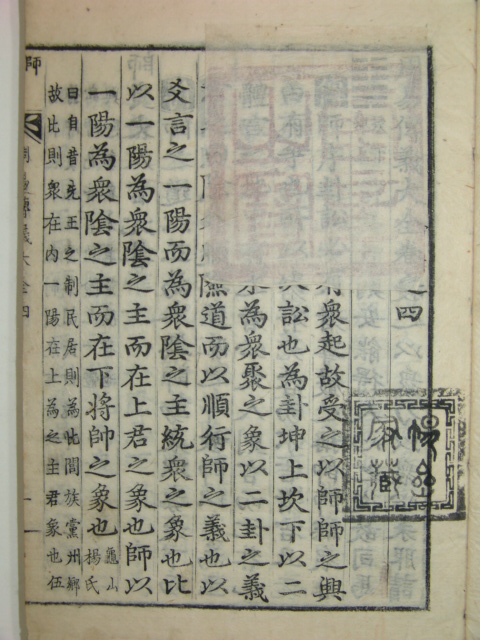 周易傳義大全卷之四
師序卦訟必有衆起故受之以師師之興
由有爭也所以次訟也為卦坤上坎下以二
為衆聚之象以二卦之義
順險道而以順行師之義也以
爻言之一陽而為衆陰之主統衆之象也比
以一陽為衆陰之主而在上君之象也師以
一陽為衆陰之主而在下將帥之象也龜山楊氏
曰自昔先王之制民居則為比閭族黨州鄉
故比則衆在內一陽在上為之主君象也伍
師
周易傳義大全四
一
家藏